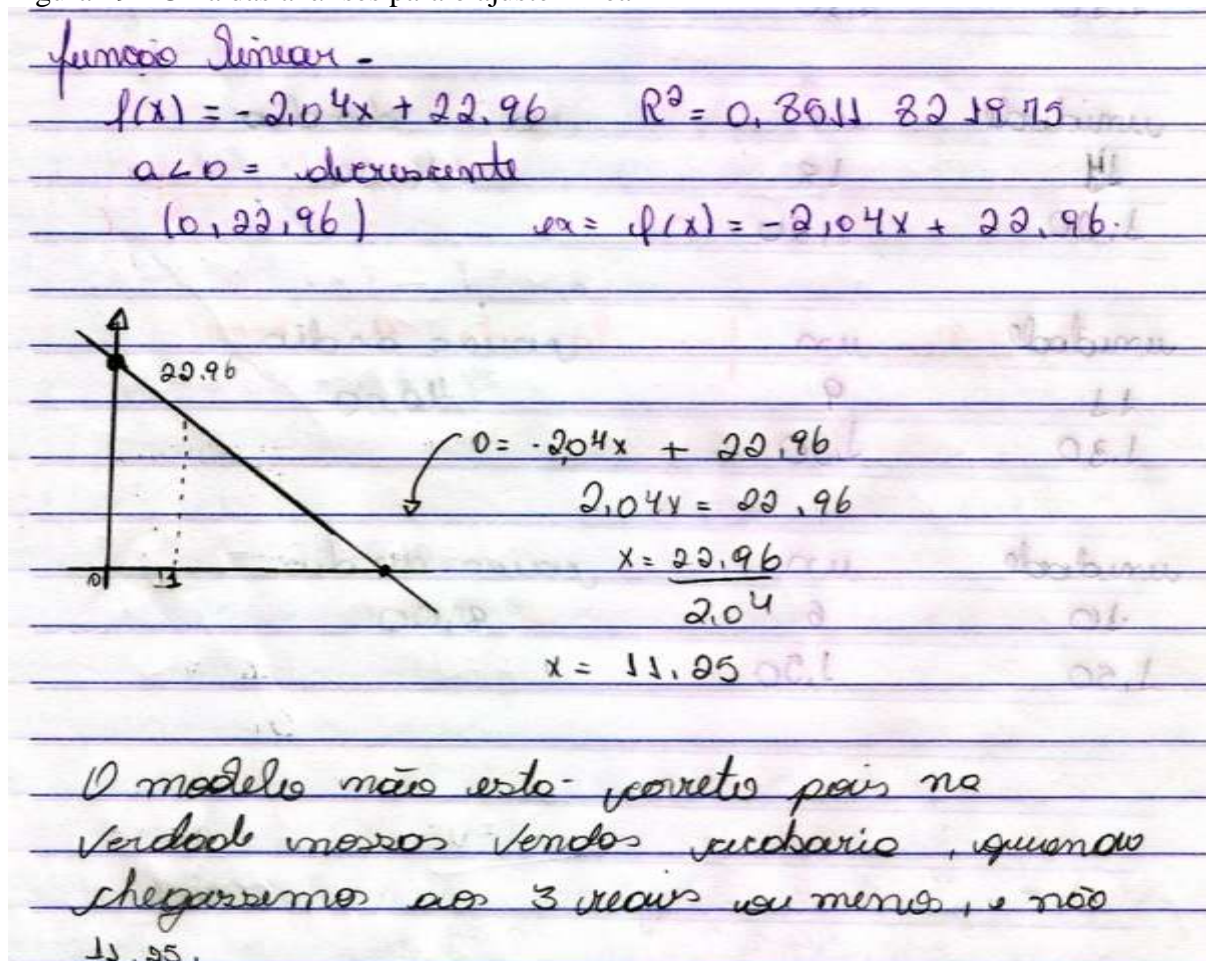 função linear -
f(x) = -2,04x + 22,96 R² = 0,8611 82 1975
a<0 = decrescente
(0,22,96) ex = f(x) = -2,04x + 22,96.
22,96
0 = -2,04x + 22,96
2,04x = 22,96
x = 22,96
2,04
x = 11,25
0 11
O modelo não esta correto pois na
verdade nossas vendas acabaria, quando
chegassemos aos 3 reais ou menos, e não
11,25.